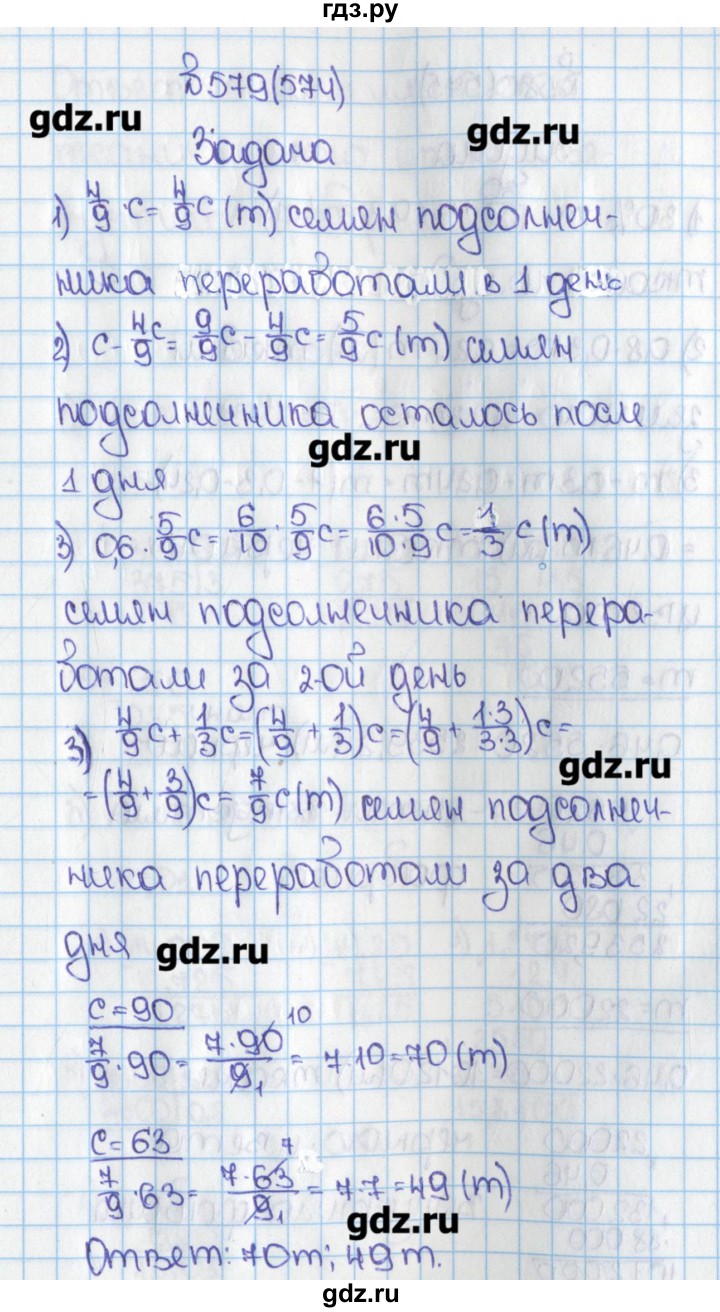 гдз.ру
№579(574)
gdz.ru
gdz.ru
Задача
1) 4/9 · с = 4/9 с (т) семян подсолнеч-
ника переработали в 1 день
2) с - 4/9 с = 9/9 с - 4/9 с = 5/9 с (т) семян
подсолнечника осталось после
gdz.ru
1 дня
3) 0,6 · 5/9 с = 6/10 · 5/9 с = 6·5/10·9 с = 1/3 с (т)
семян подсолнечника перера-
ботали за 2-ой день
3) 4/9 с + 1/3 с = (4/9 + 1/3) с = (4/9 + 1·3/3·3) с =
gdz.ru
= (4/9 + 3/9) с = 7/9 с (т) семян подсолнеч-
ника переработали за два
дня
gdz.ru
с = 90
7/9 · 90 = 7·90/9 = 7·10 = 70 (т)
10
1
с = 63
7/9 · 63 = 7·63/9 = 7·7 = 49 (т)
7
1
gdz.ru
Ответ: 70т; 49т.
gdz.ru